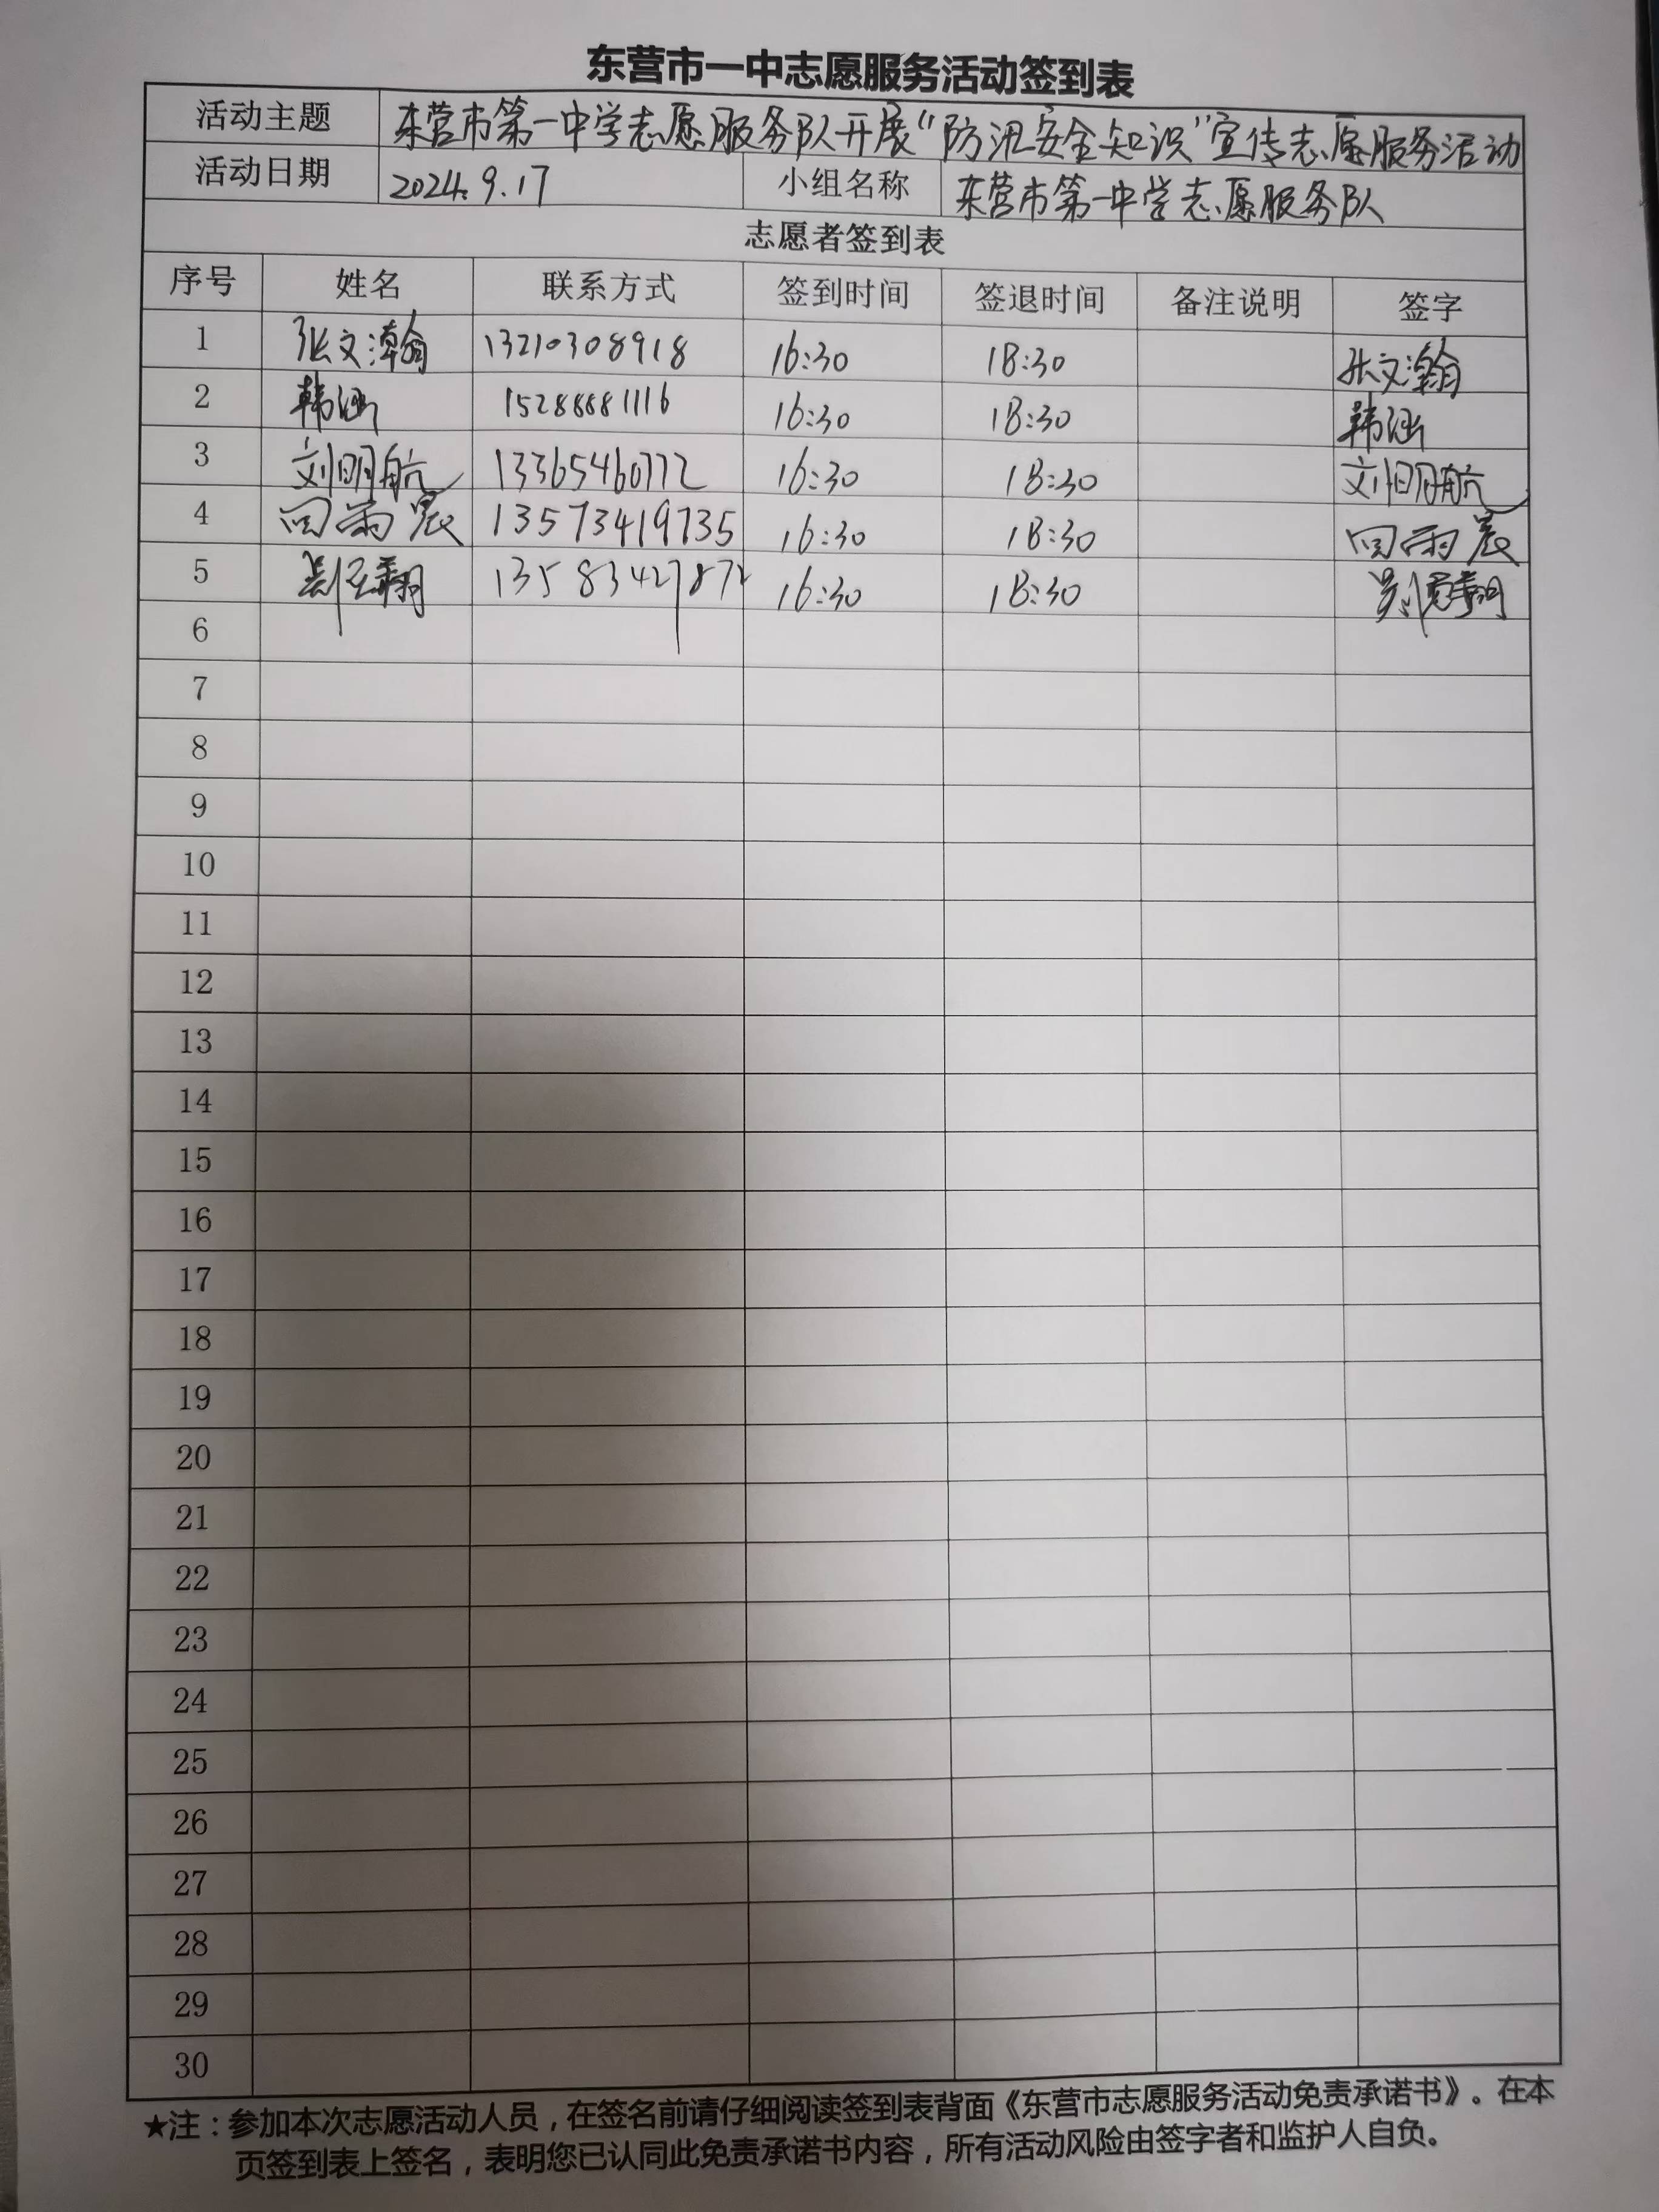 东营市一中志愿服务活动签到表
活动主题 东营市第一中学志愿服务队开展“防汛安全知识”宣传志愿服务活动
活动日期 2024.9.17 小组名称 东营市第一中学志愿服务队
志愿者签到表
序号 姓名 联系方式 签到时间 签退时间 备注说明 签字
1 张文瀚 13210308918 16:30 18:30 张文瀚
2 韩涵 15288881116 16:30 18:30 韩涵
3 刘明航 13365460772 16:30 18:30 刘明航
4 回雨宸 13573419735 16:30 18:30 回雨宸
5 13583427872 16:30 18:30
6
7
8
9
10
11
12
13
14
15
16
17
18
19
20
21
22
23
24
25
26
27
28
29
30
★注：参加本次志愿活动人员，在签名前请仔细阅读签到表背面《东营市志愿服务活动免责承诺书》。在本
页签到表上签名，表明您已认同此免责承诺书内容，所有活动风险由签字者和监护人自负。